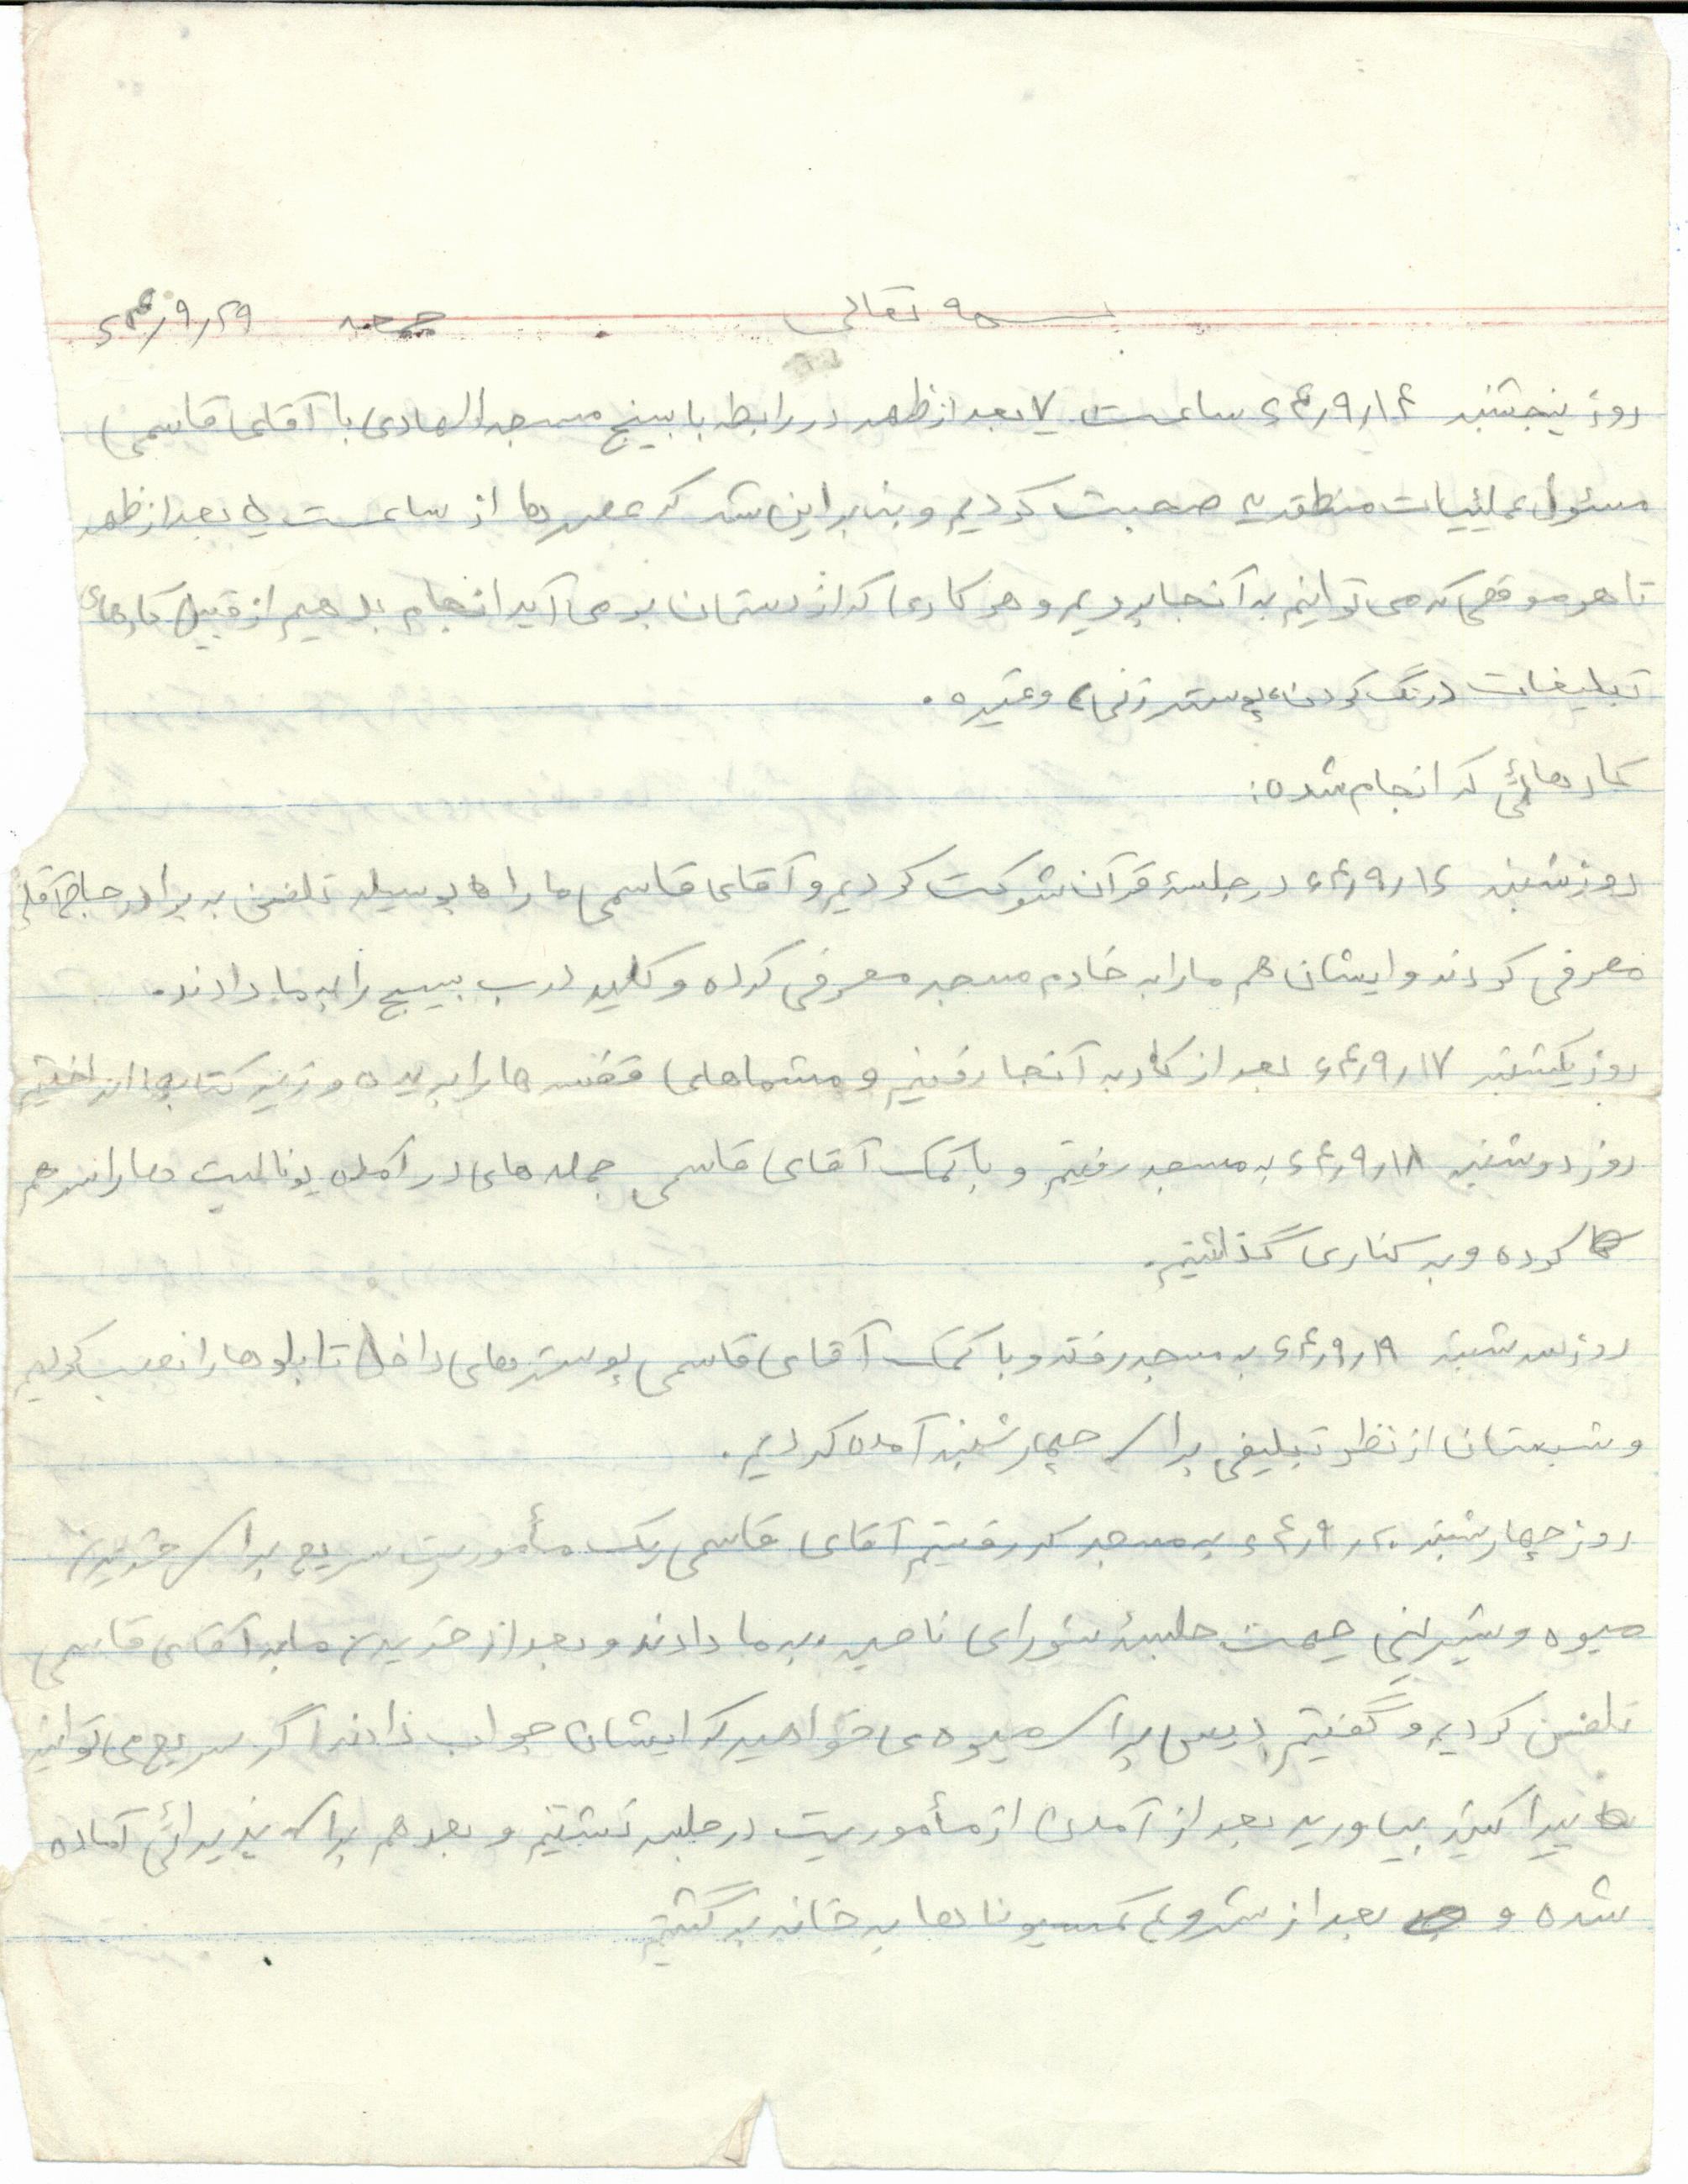 بسمه تعالی جمعه ۶۴/۹/۲۹
روز پنجشنبه ۶۴/۹/۱۴ ساعت ۷ بعد از ظهر در رابطه با بسیج مسجد الهادی با آقای قاسمی
مسئول عملیات منطقه صحبت کردیم و بنابراین شد که عصرها از ساعت بعد از ظهر
تا هر موقعی که می توانیم به آنجا برویم و هر کاری که از دستمان بر می آید انجام بدهیم از قبیل کارهای
تبلیغات (رنگ کردن، پوستر زنی) و غیره .
کارهائی که انجام شده:
روز شنبه ۶۴/۹/۱۶ در جلسهٔ قرآن شرکت کردیم و آقای قاسمی ما را بوسیله تلفن به برادر
معرفی کردند و ایشان هم ما را به خادم مسجد معرفی کرده و کلید درب بسیج را به ما دادند.
روز یکشنبه ۶۴/۹/۱۷ بعد از کار به آنجا رفتیم و مشماهای قفسه ها را بریده و زیر کتابها انداختیم
روز دوشنبه ۶۴/۹/۱۸ به مسجد رفتیم و با کمک آقای قاسمی جمله های در آمده یونالیت ها را سر هم
کرده و به کناری گذاشتیم.
روز سه شنبه ۶۴/۹/۱۹ به مسجد رفته و با کمک آقای قاسمی پوسترهای داخل تابلوها را نصب کردیم
و شبستان از نظر تبلیغی برای چهارشنبه آماده کردیم .
روز چهارشنبه ۶۴/۹/۲۰ به مسجد که رفتیم آقای قاسمی یک مأموریت سریع برای خریدن
میوه و شیرینی جهت جلسهٔ شورای ناحیه به ما دادند و بعد از خریدن ما به آقای قاسمی
تلفن کردیم و گفتیم دیس برای میوه می خواهید که ایشان جواب دادند اگر سریع می توانید
پیدا کنید بیاورید بعد از آمدن از مأموریت در جلسه نشستیم و بعد هم برای پذیرائی آماده
شده و بعد از شروع کمسیونها به خانه برگشتیم